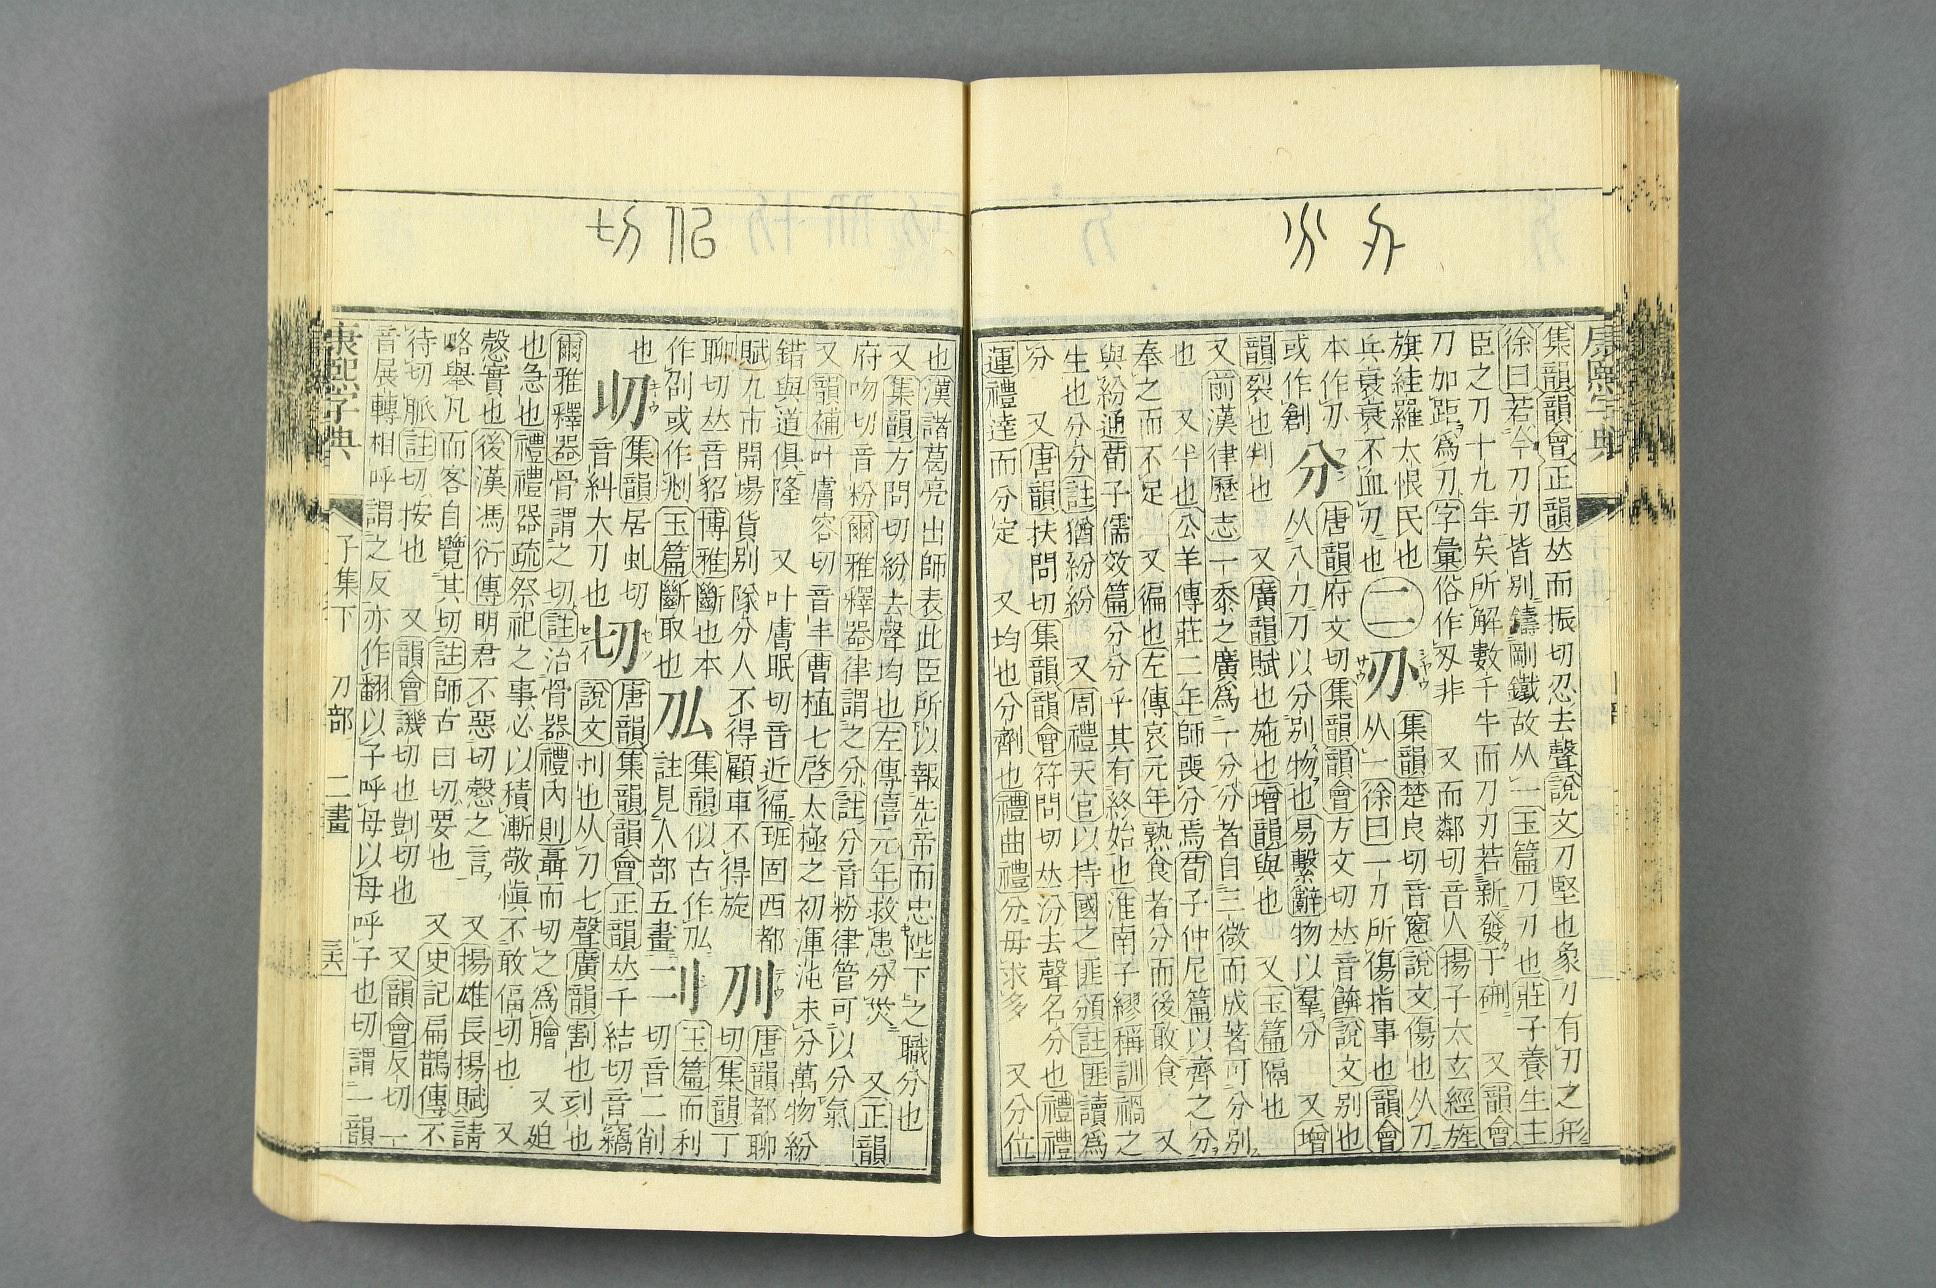 康熙字典
集韻韻會正韻𠀤而振切忍去聲說文刀堅也象刀有刃之形
徐曰若今刀刃皆別鑄剛鐵故从一玉篇刀刃也莊子養生主
臣之刀十九年矣所解數千牛而刀刃若新發于硎 又韻會
刀加距爲刃字彙俗作刄非 又而鄰切音人揚子太玄經旌
旗絓羅太恨民也 二 刅 集韻楚良切音窻說文傷也从刀
兵衰衰不血刃也 从一徐曰一刀所傷指事也韻會
本作刃 分 唐韻府文切集韻韻會方文切𠀤音餴說文別也
或作創 从八刀刀以分別物也易繫辭物以羣分 又增
韻裂也判也 又廣韻賦也施也增韻與也 又玉篇隔也
又前漢律歷志一黍之廣爲一分分者自三微而成著可分別
也 又半也公羊傳莊二年師喪分焉荀子仲尼篇以齊之分
奉之而不足 又徧也左傳哀元年熟食者分而後敢食 又
與紛通荀子儒效篇分分乎其有終始也淮南子繆稱訓禍之
生也分分註猶紛紛 又周禮天官以持國之匪頒註匪讀爲
分 又唐韻扶問切集韻韻會符問切𠀤汾去聲名分也禮禮
運禮達而分定 又均也分劑也禮曲禮分毋求多 又分位
也漢諸葛亮出師表此臣所以報先帝而忠陛下之職分也
又集韻方問切紛去聲均也左傳僖元年救患分烖 又正韻
府吻切音粉爾雅釋器律謂之分註分音粉律管可以分氣
又韻補叶膚容切音丰曹植七啓太極之初渾沌未分萬物紛
錯與道俱隆 又叶膚眠切音近徧班固西都 唐韻都聊
賦九市開場貨別隧分人不得顧車不得旋 切集韻丁
聊切𠀤音貂博雅斷也本 集韻似古作 玉篇而利
作刟或作玉篇斷取也 註見人部五畫 切音二削
也 集韻居虬切 切 唐韻集韻韻會正韻𠀤千結切音竊
音糾大刀也 說文刌也从刀七聲廣韻割也刻也
爾雅釋器骨謂之切註治骨器禮內則聶而切之爲膾 又迫
也急也禮禮器疏祭祀之事必以積漸敬愼不敢偪切也 又
慤實也後漢馮衍傳明君不惡切慤之言 又揚雄長揚賦請
略舉凡而客自覽其切註師古曰切要也 又史記扁鵲傳不
待切脈註切按也 又韻會譏切也剴切也 又韻會反切 一
音展轉相呼謂之反亦作翻以子呼母以母呼子也切謂一韻
康熙字典 子集下 刀部 二畫 三六